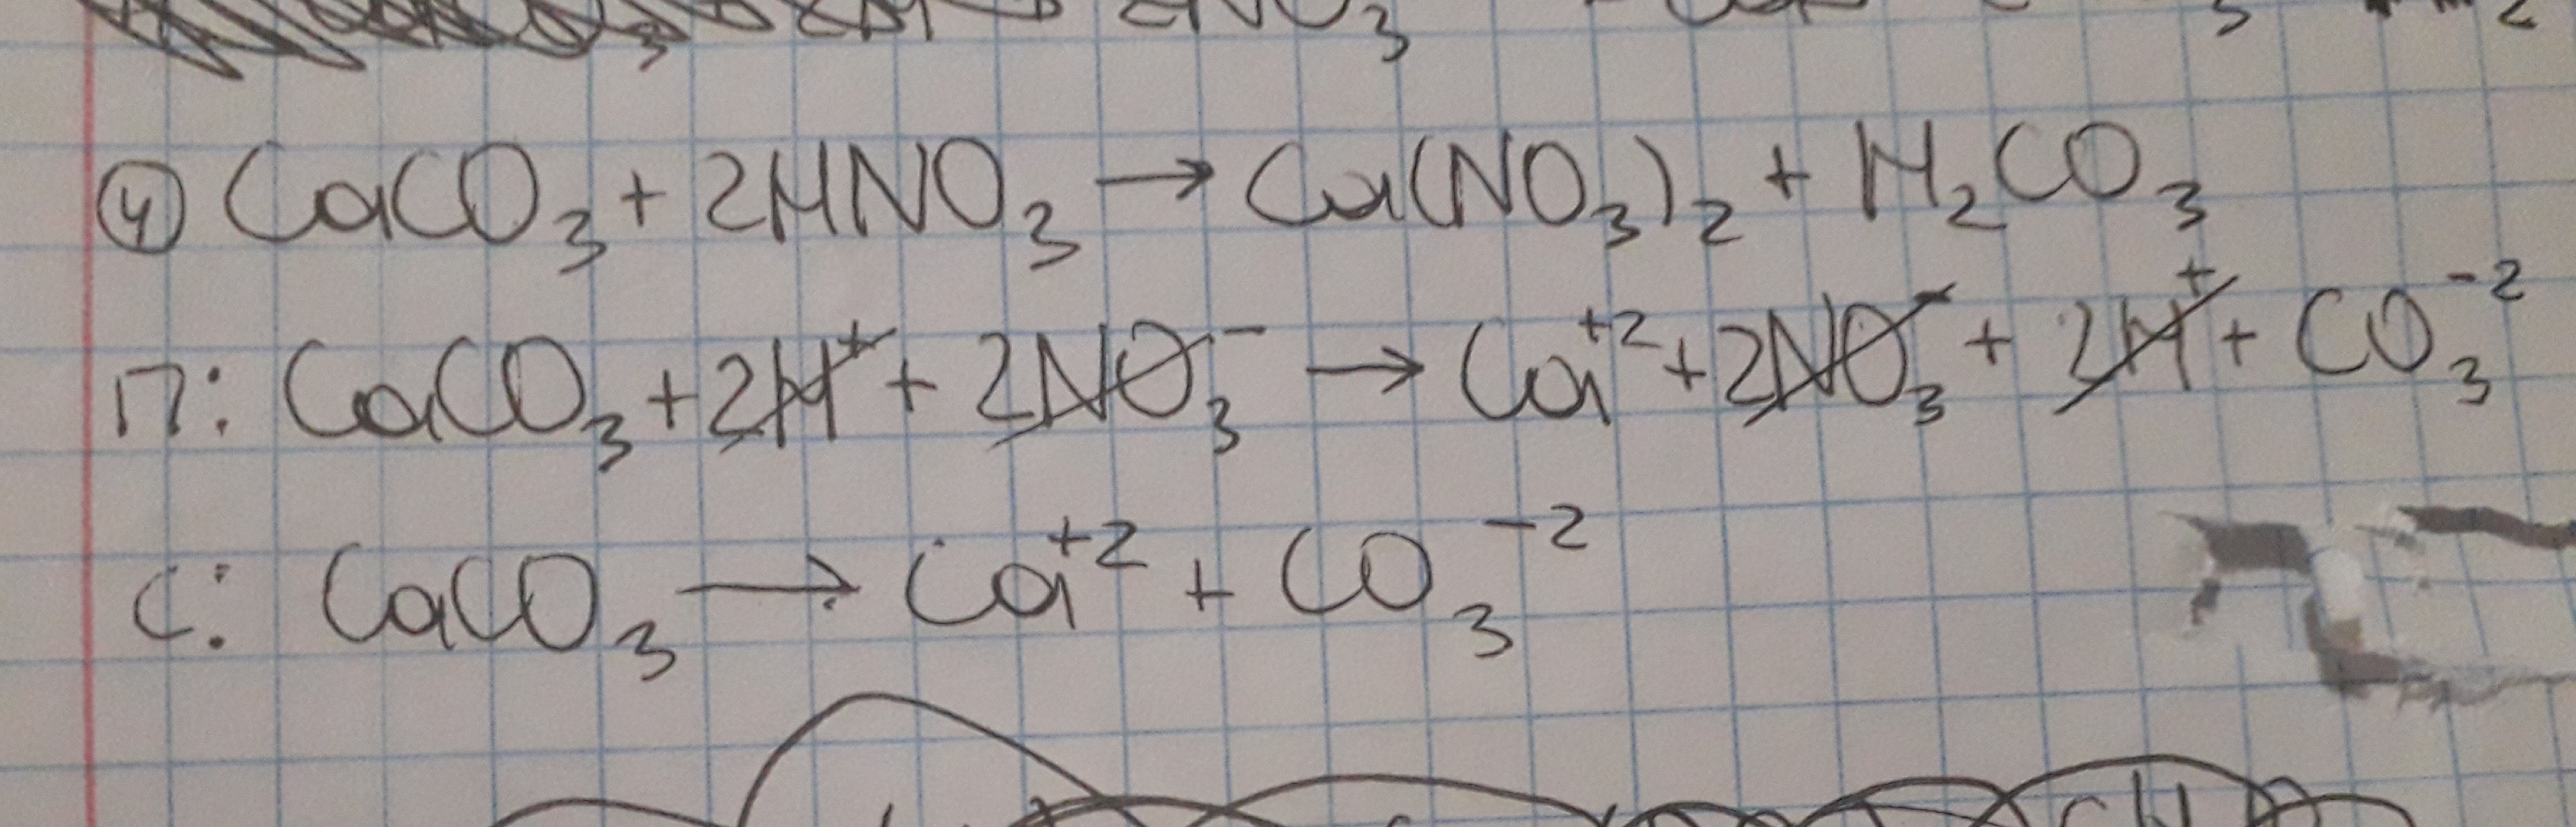 2NO₃
④ CaCO₃ + 2HNO₃ → Ca(NO₃)₂ + H₂CO₃
П: CaCO₃ + 2H⁺ + 2NO₃⁻ → Ca⁺² + 2NO₃⁻ + 2H⁺ + CO₃⁻²
С: CaCO₃ → Ca⁺² + CO₃⁻²